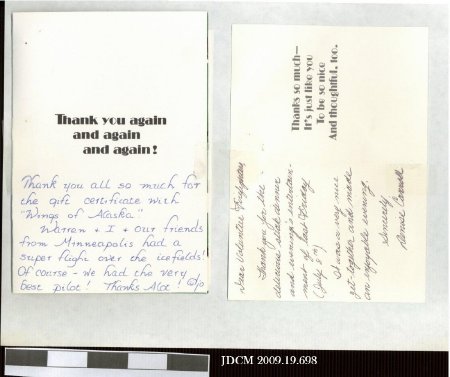 Thank you again
and again
and again!
Thank you all so much for
the gift certificate with
"Wings of Alaska"
Warren + I + our friends
from Minneapolis had a
super flight over the icefields!
Of course - we had the very
best pilot! Thanks Alot!
Thanks so much—
It's just like you
To be so nice
And thoughtful, too.
Dear Volunteer Firefighters
Thank you for the
delicious steak dinner
and evening's entertain-
ment of last Friday
(July 8th)
It was a very nice
get-together and made
an enjoyable evening.
Sincerely
JDCM 2009.19.698